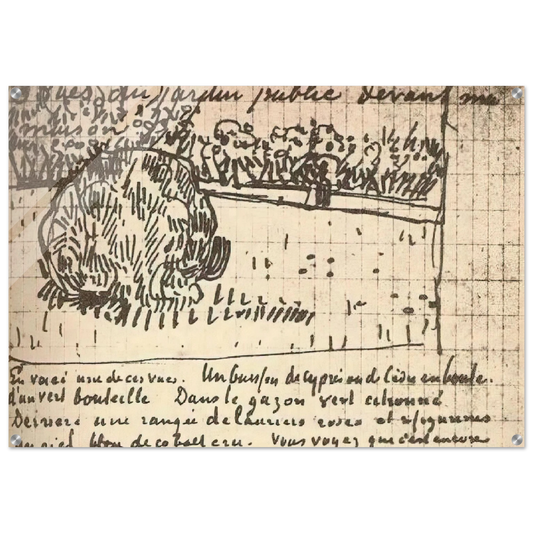 du jardin public devant ma
maison
En voici une de ces vues. Un buisson de cyprès ou de cèdre en boule.
d'un vert bouteille Dans le gazon vert citronné
Derrière une rangée de lauriers roses et
ciel bleu de cobalt cru. Vous voyez que c'est encore